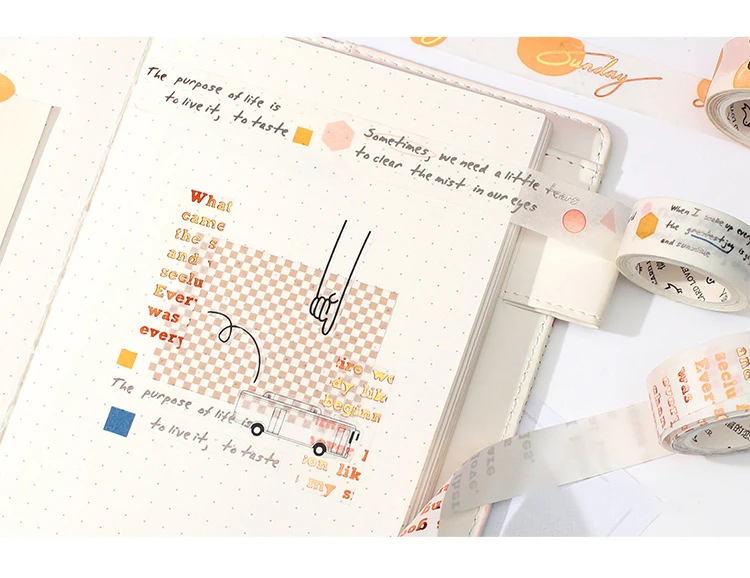 Sunday
The purpose of life is
to live it, to taste
Sometimes, we need a little tears
to clear the mist in our eyes
When I wake up every
the greatest joy is
and sunshine
What
came
the s
and
seclu
Ever
was
every
The purpose of life is
to live it, to taste
ire we
dy lik
beginn
over
ion lik
my s
and
seclu
Ever
was